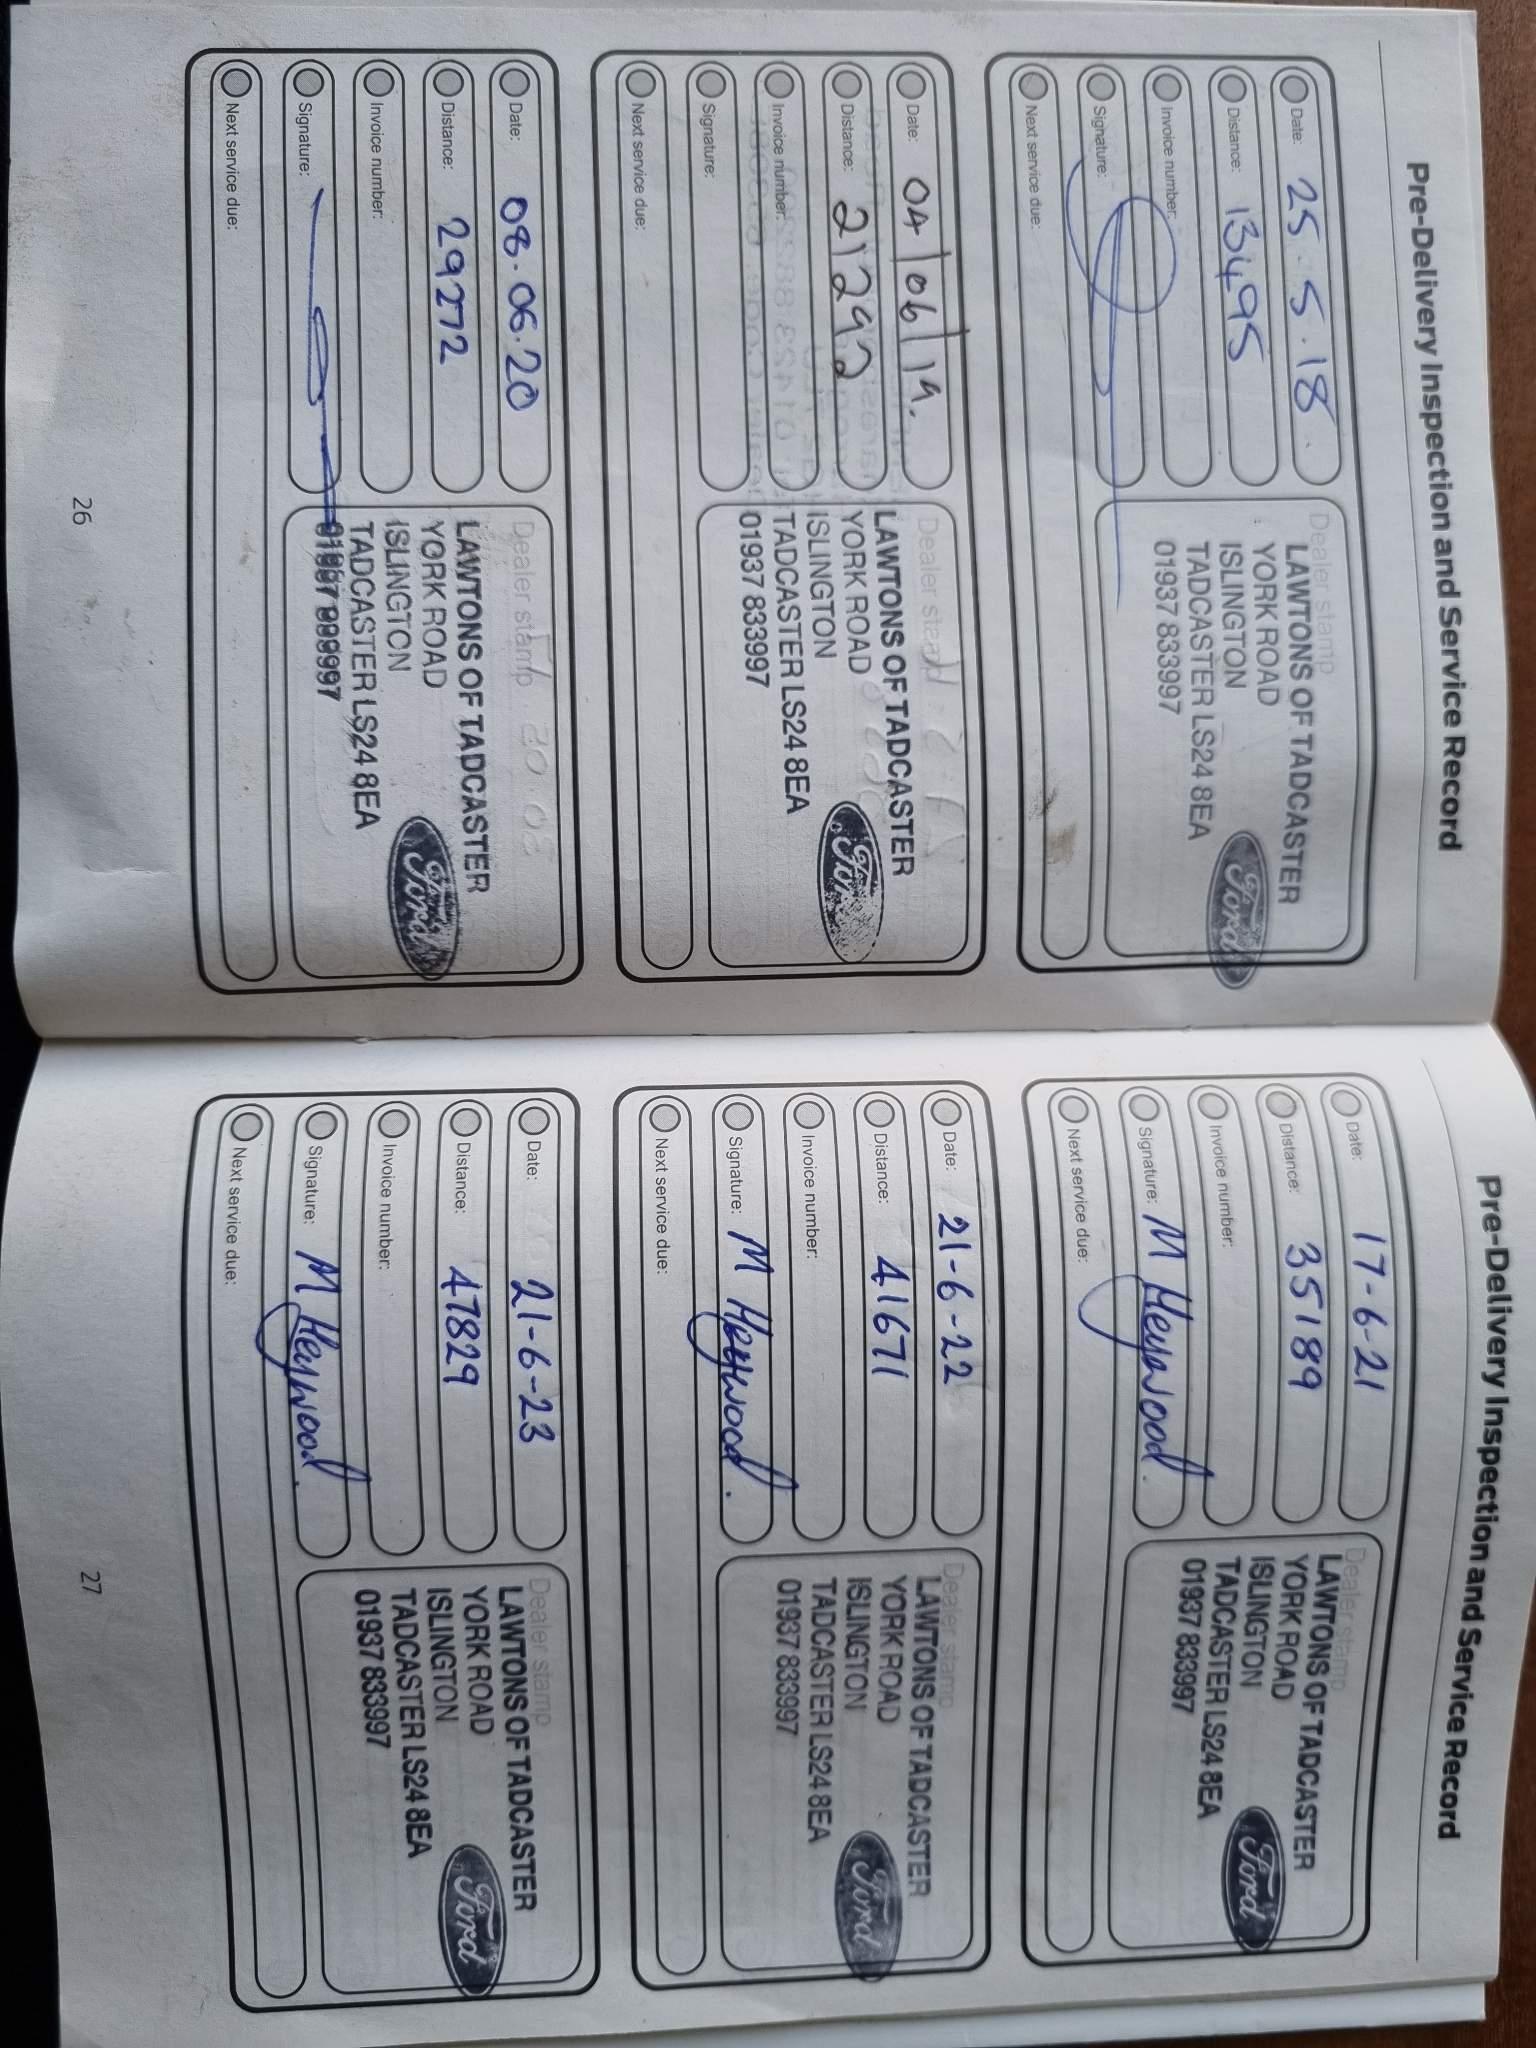 Pre-Delivery Inspection and Service Record
Date: 25.5.18
Distance: 13495
Invoice number:
Signature:
Next service due:
Dealer stamp
LAWTONS OF TADCASTER
YORK ROAD
ISLINGTON
TADCASTER LS24 8EA
01937 833997
Ford
Date: 04/06/19.
Distance: 21292
Invoice number:
Signature:
Next service due:
Dealer
LAWTONS OF TADCASTER
YORK ROAD
ISLINGTON
TADCASTER LS24 8EA
01937 833997
Ford
Date: 08.06.20
Distance: 29272
Invoice number:
Signature:
Next service due:
Dealer stamp
LAWTONS OF TADCASTER
YORK ROAD
ISLINGTON
TADCASTER LS24 8EA
Ford
26
Pre-Delivery Inspection and Service Record
Date: 17-6-21
Distance: 35189
Invoice number:
Signature: M Heywood.
Next service due:
Dealer stamp
LAWTONS OF TADCASTER
YORK ROAD
ISLINGTON
TADCASTER LS24 8EA
01937 833997
Ford
Date: 21-6-22
Distance: 41671
Invoice number:
Signature: M Heywood.
Next service due:
Dealer stamp
LAWTONS OF TADCASTER
YORK ROAD
ISLINGTON
TADCASTER LS24 8EA
01937 833997
Ford
Date: 21-6-23
Distance: 47829
Invoice number:
Signature: M Heywood.
Next service due:
Dealer stamp
LAWTONS OF TADCASTER
YORK ROAD
ISLINGTON
TADCASTER LS24 8EA
01937 833997
Ford
27